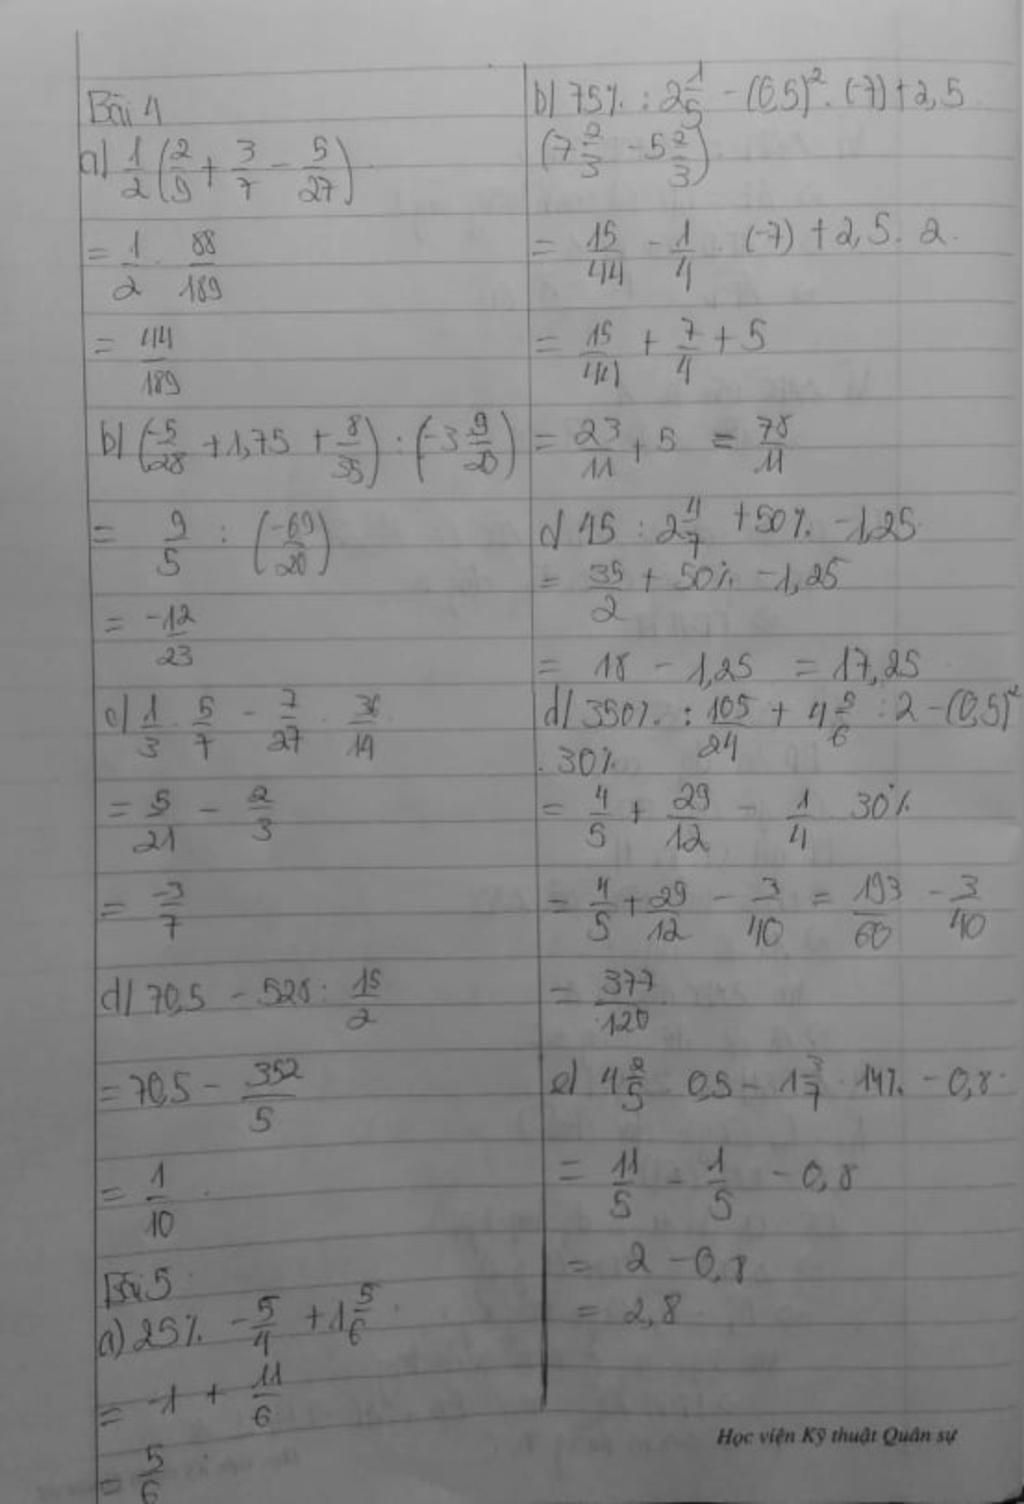 Bài 4
a) 1/2 (2/9 + 3/7 - 5/27)
= 1/2 . 88/189
= 44/189
b) (-5/28 + 1,75 + 8/35) : (-3 9/20)
= 9/5 : (-69/20)
= -12/23
c) 1/3 . 5/7 - 7/27 . 36/14
= 5/21 - 2/3
= -3/7
d) 70,5 - 528 : 15/2
= 70,5 - 352/5
= 1/10
Bài 5
a) 25% - 5/4 + 1 5/6
= -1 + 11/6
= 5/6
b) 75% : 2 1/5 - (0,5)² . (-7) + 2,5
(7 2/3 - 5 2/3)
= 15/44 - 1/4 (-7) + 2,5 . 2
= 15/44 + 7/4 + 5
= 23/11 + 5 = 78/11
c) 45 : 2 4/7 + 50% - 1,25
= 35/2 + 50% - 1,25
= 18 - 1,25 = 17,25
d) 350% : 105/24 + 4 5/6 : 2 - (0,5)²
. 30%
= 4/5 + 29/12 - 1/4 30%
= 4/5 + 29/12 - 3/40 = 193/60 - 3/40
= 377/120
e) 4 2/5 0,5 - 1 3/7 . 14% - 0,8
= 11/5 - 1/5 - 0,8
= 2 - 0,8
= 2,8
Học viện Kỹ thuật Quân sự